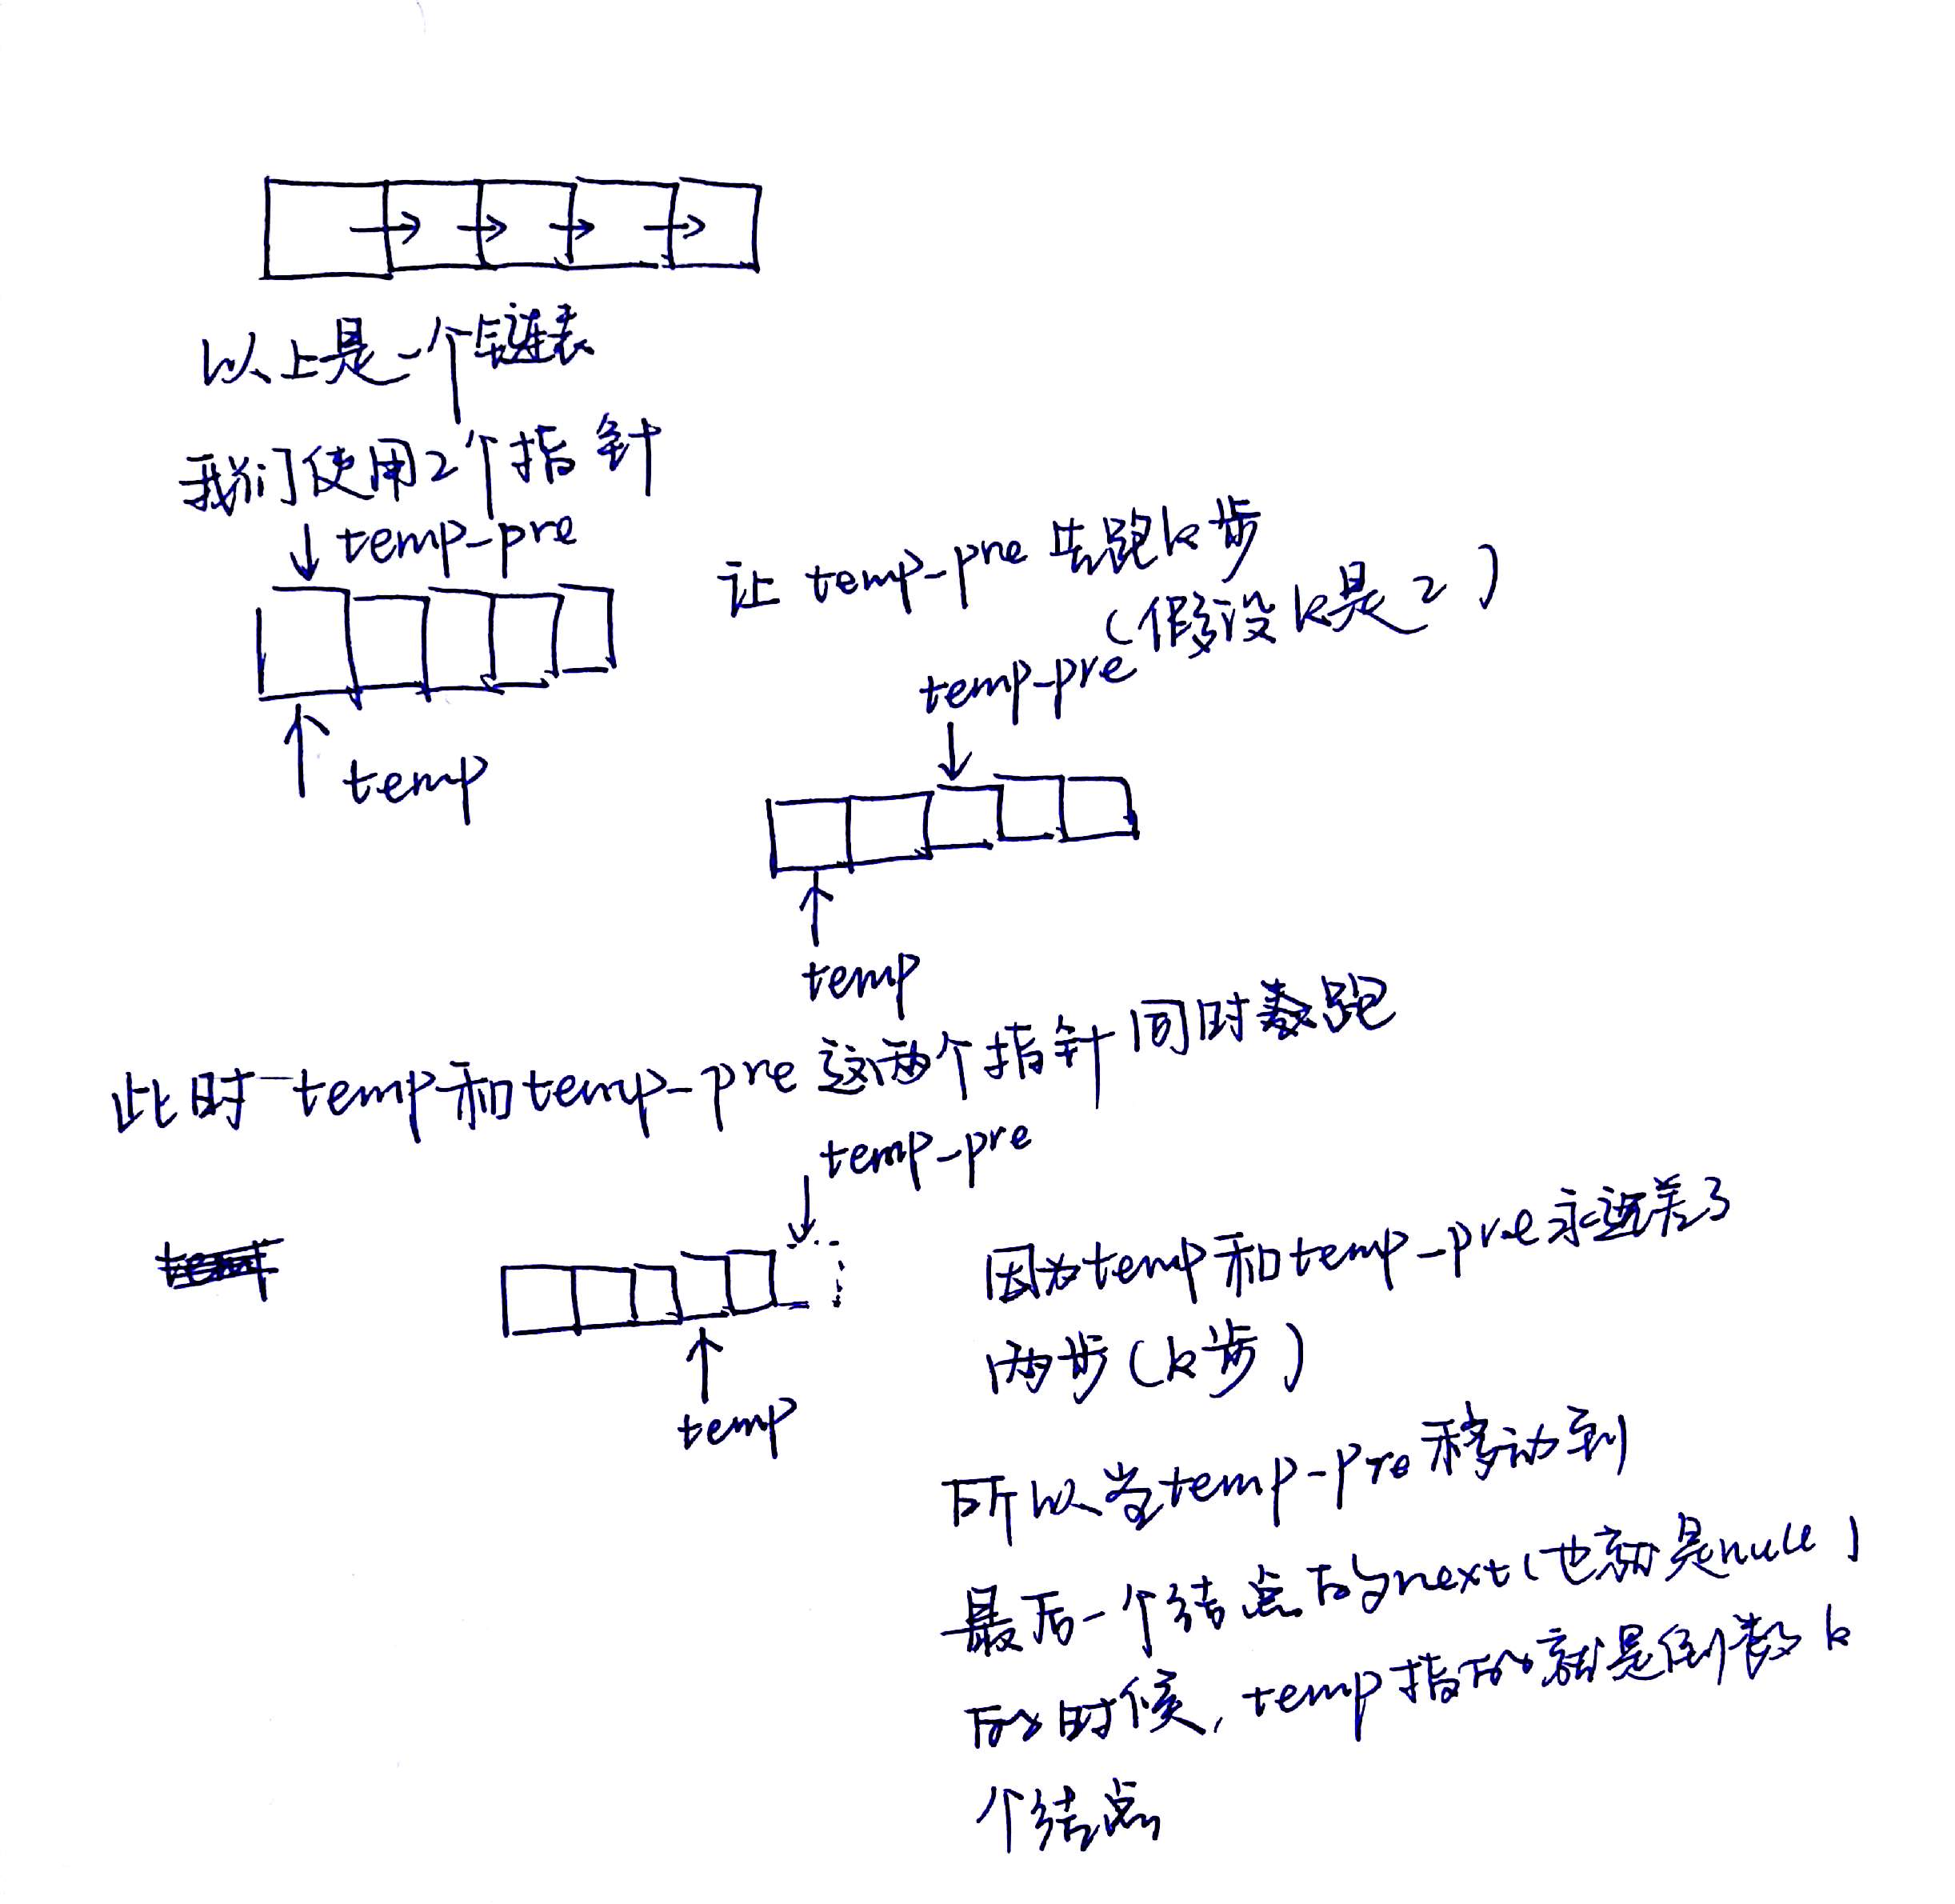 以上是一个链表
我们使用2个指针
temp-pre
temp
让 temp-pre 先跑k步
(假设k是2)
temp-pre
temp
此时temp和temp-pre这两个指针同时跑
temp-pre
temp
因为temp和temp-pre永远差了
两步(k步)
所以当temp-pre移动到
最后一个结点的next(也就是null)
的时候,temp指的就是倒数k
个结点